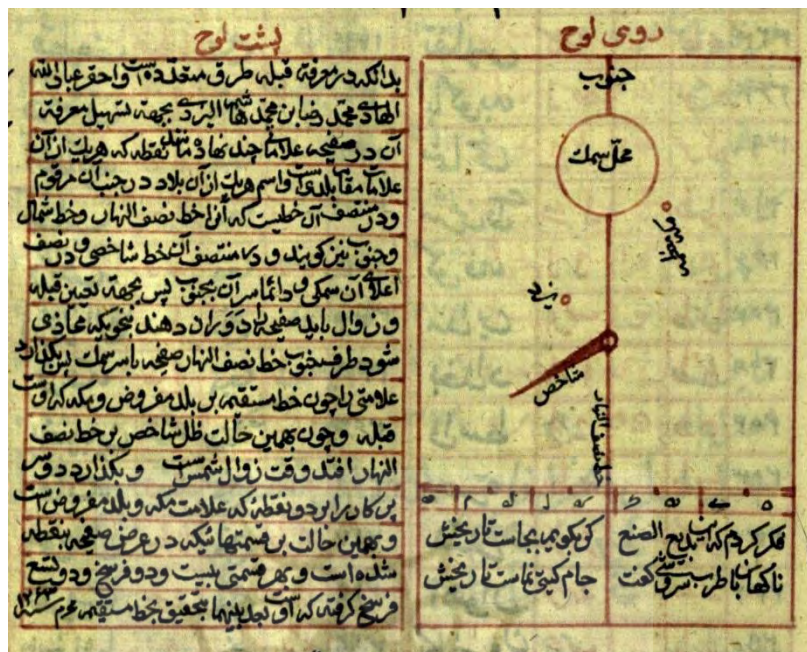 روی لوح
جنوب
محل سمك
یزد
شاخص
خط نصف النهار
فکر کردم که این بدیع الصنع
کو بگویم بجاست تاریخش
ناکهان با طرب سروشی گفت
جام گیتی نماست تاریخش
پشت لوح
بدانکه در معرفة قبله طرق متعدده است و احقر عباد الله
الهادی محمد رضا بن محمد هاشم الیزدی بجهة تسهیل معرفة
آن در صفیحه علاماتی چند نهاده مانند نقطه که هر یك از آن
علامات مقابل بلدی است و اسم هر یك از آن بلاد در جنب آن مرقوم
و در منتصف آن خطیست که آنرا خط نصف النهار و خط شمال
و جنوب نیز کویند و در منتصف آن خط شاخصی و در نصف
اعلای آن سمکی و دائما سر آن بجنوب پس بجهة تعیین قبله
و زوال باید صفیحه را دوران دهند بنحویکه محاذی
شود طرف جنوب خط نصف النهار صفیحه با سر سمك پس بگذارد
علامتی را چون خط مستقیم بر بلد مفروض و مکه که اوست
قبله و چون بهمین حالت ظل شاخص بر خط نصف
النهار افتد وقت زوال شمس است و بگذارد دو سر
پرکار را بر دو نقطهٔ که علامت مکه و بلد مفروض است
و بهمین حالت بر قسمتهائیکه در عرض صفیحه بنقطه
شده است و هر قسمتی بیست و دو فرسخ و دو تسع
فرسخ گرفته که اوست بعد بینهما بتحقیق بخط مستقیم محرم سنه ۱۲۶۳